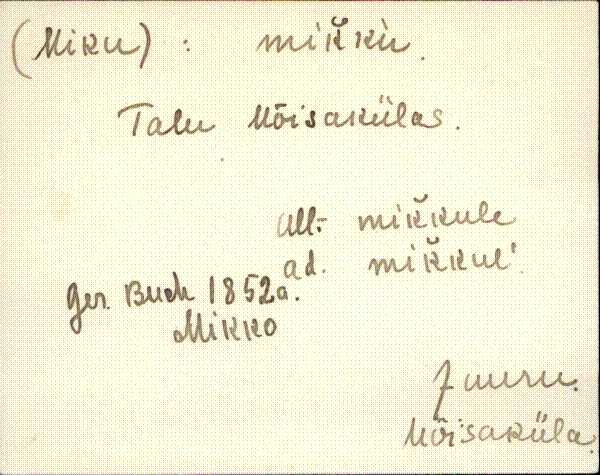 (Miku) : mik̆kù.
Talu Mõisakülas.
all. mik̆kule
ad. mik̆kul'.
Ger. Buch 1852a.
Mikko
Juuru.
Mõisaküla.